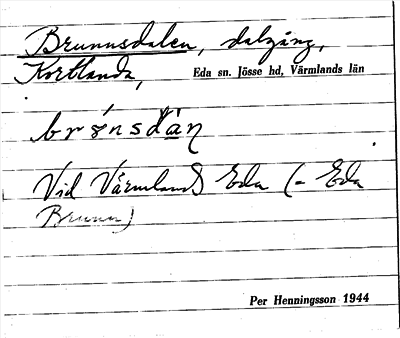 Brunnsdalen, dalgång,
Kortlanda, Eda sn. Jösse hd, Värmlands län
brønsdàṇ
Vid Värmlands Eda (= Eda
Brunn)
Per Henningsson 1944